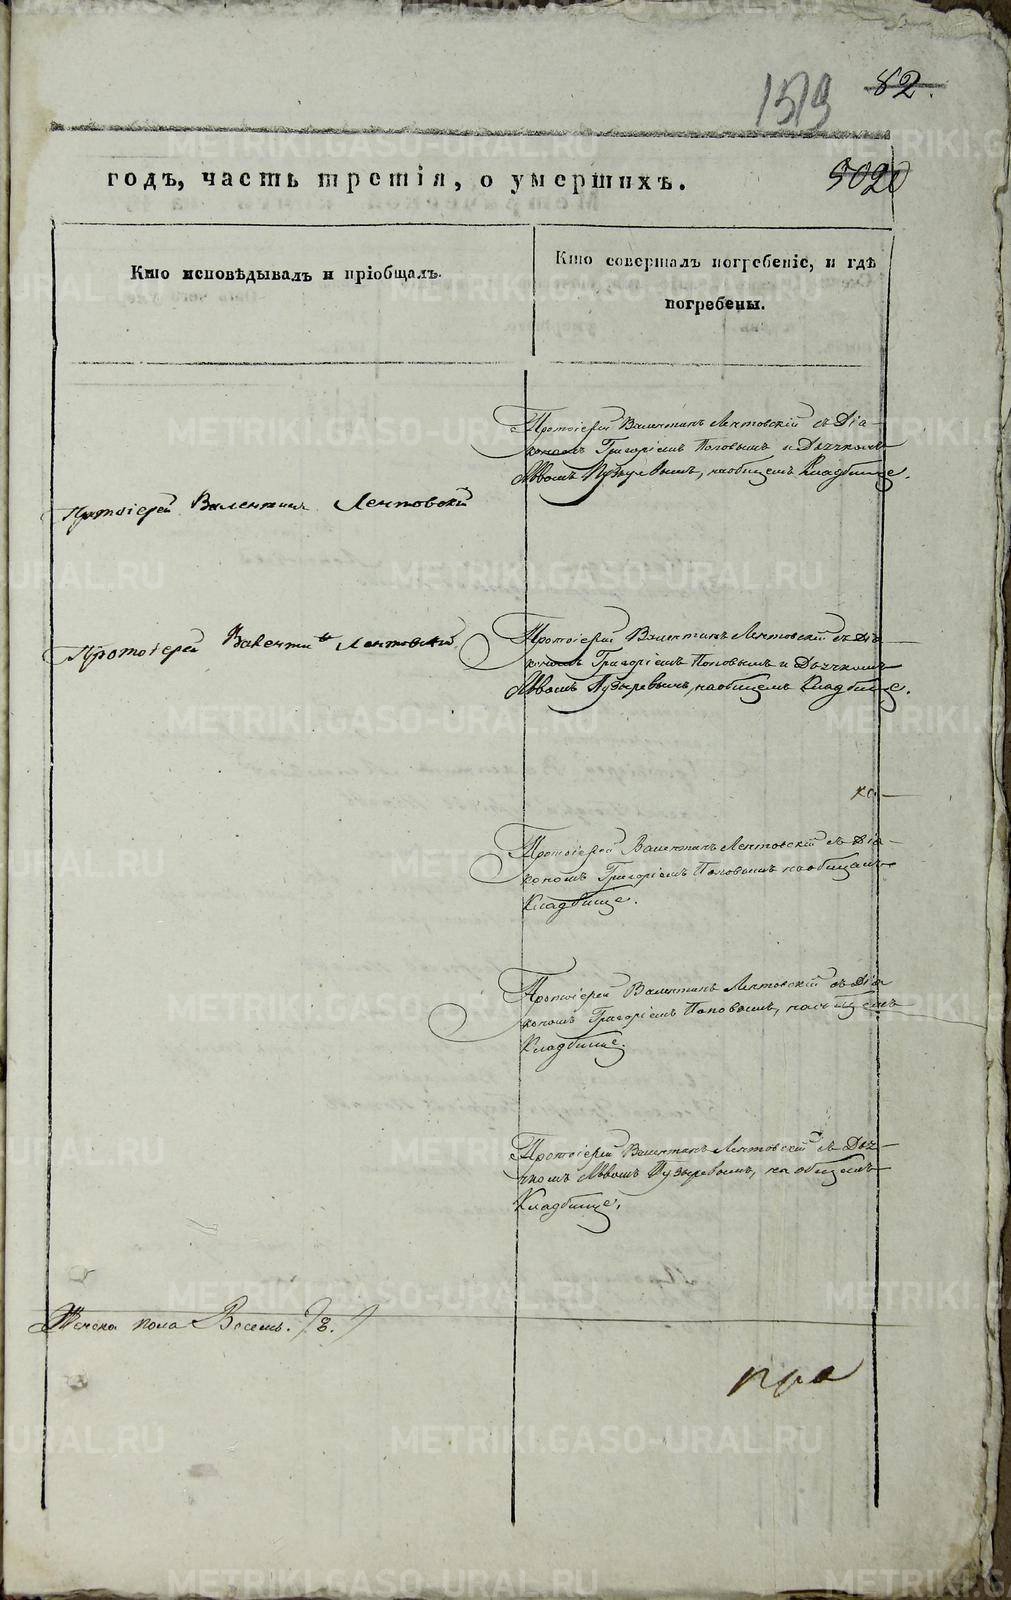 82.
1519
5020
годъ, часть третія, о умершихъ.
Кто исповѣдывалъ и пріобщалъ.
Кто совершалъ погребеніе, и гдѣ
погребены.
Протоіерей Валентинъ Лентовскій съ Діа-
кономъ Григоріемъ Поповымъ и Дьячкомъ
Аввомъ Пузыревымъ, на общемъ Кладбище.
Протоіерей Валентин Лентовскій
Протоіерей Валентинъ Лентовскій съ Діа-
кономъ Григоріемъ Поповымъ и Дьячкомъ
Аввомъ Пузыревымъ, на общемъ Кладбище.
Протоіерей Валентинъ Лентовскій.
Протоіерей Валентинъ Лентовскій съ Діа-
кономъ Григоріемъ Поповымъ на общемъ
Кладбище.
Протоіерей Валентинъ Лентовскій съ Діа
кономъ Григоріемъ Поповымъ, на общемъ
Кладбище.
Протоіерей Валентинъ Лентовскій съ Дьяч-
комъ Аввомъ Пузыревымъ, на общемъ
Кладбище.
Женска пола Восемь. /8./
METRIKI.GASO-URAL.RU